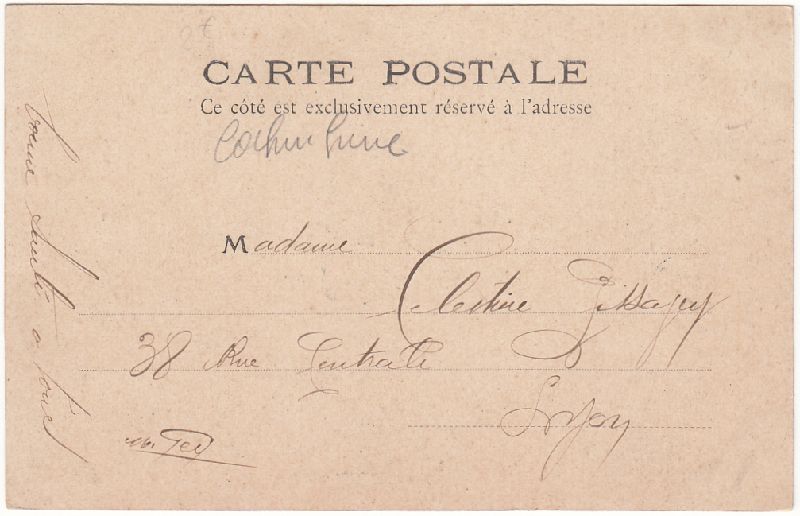 CARTE POSTALE
Ce côté est exclusivement réservé à l'adresse
Cochinchine
Madame
Celestine
38 Rue Centrale
Lyon
bonne santé a tous